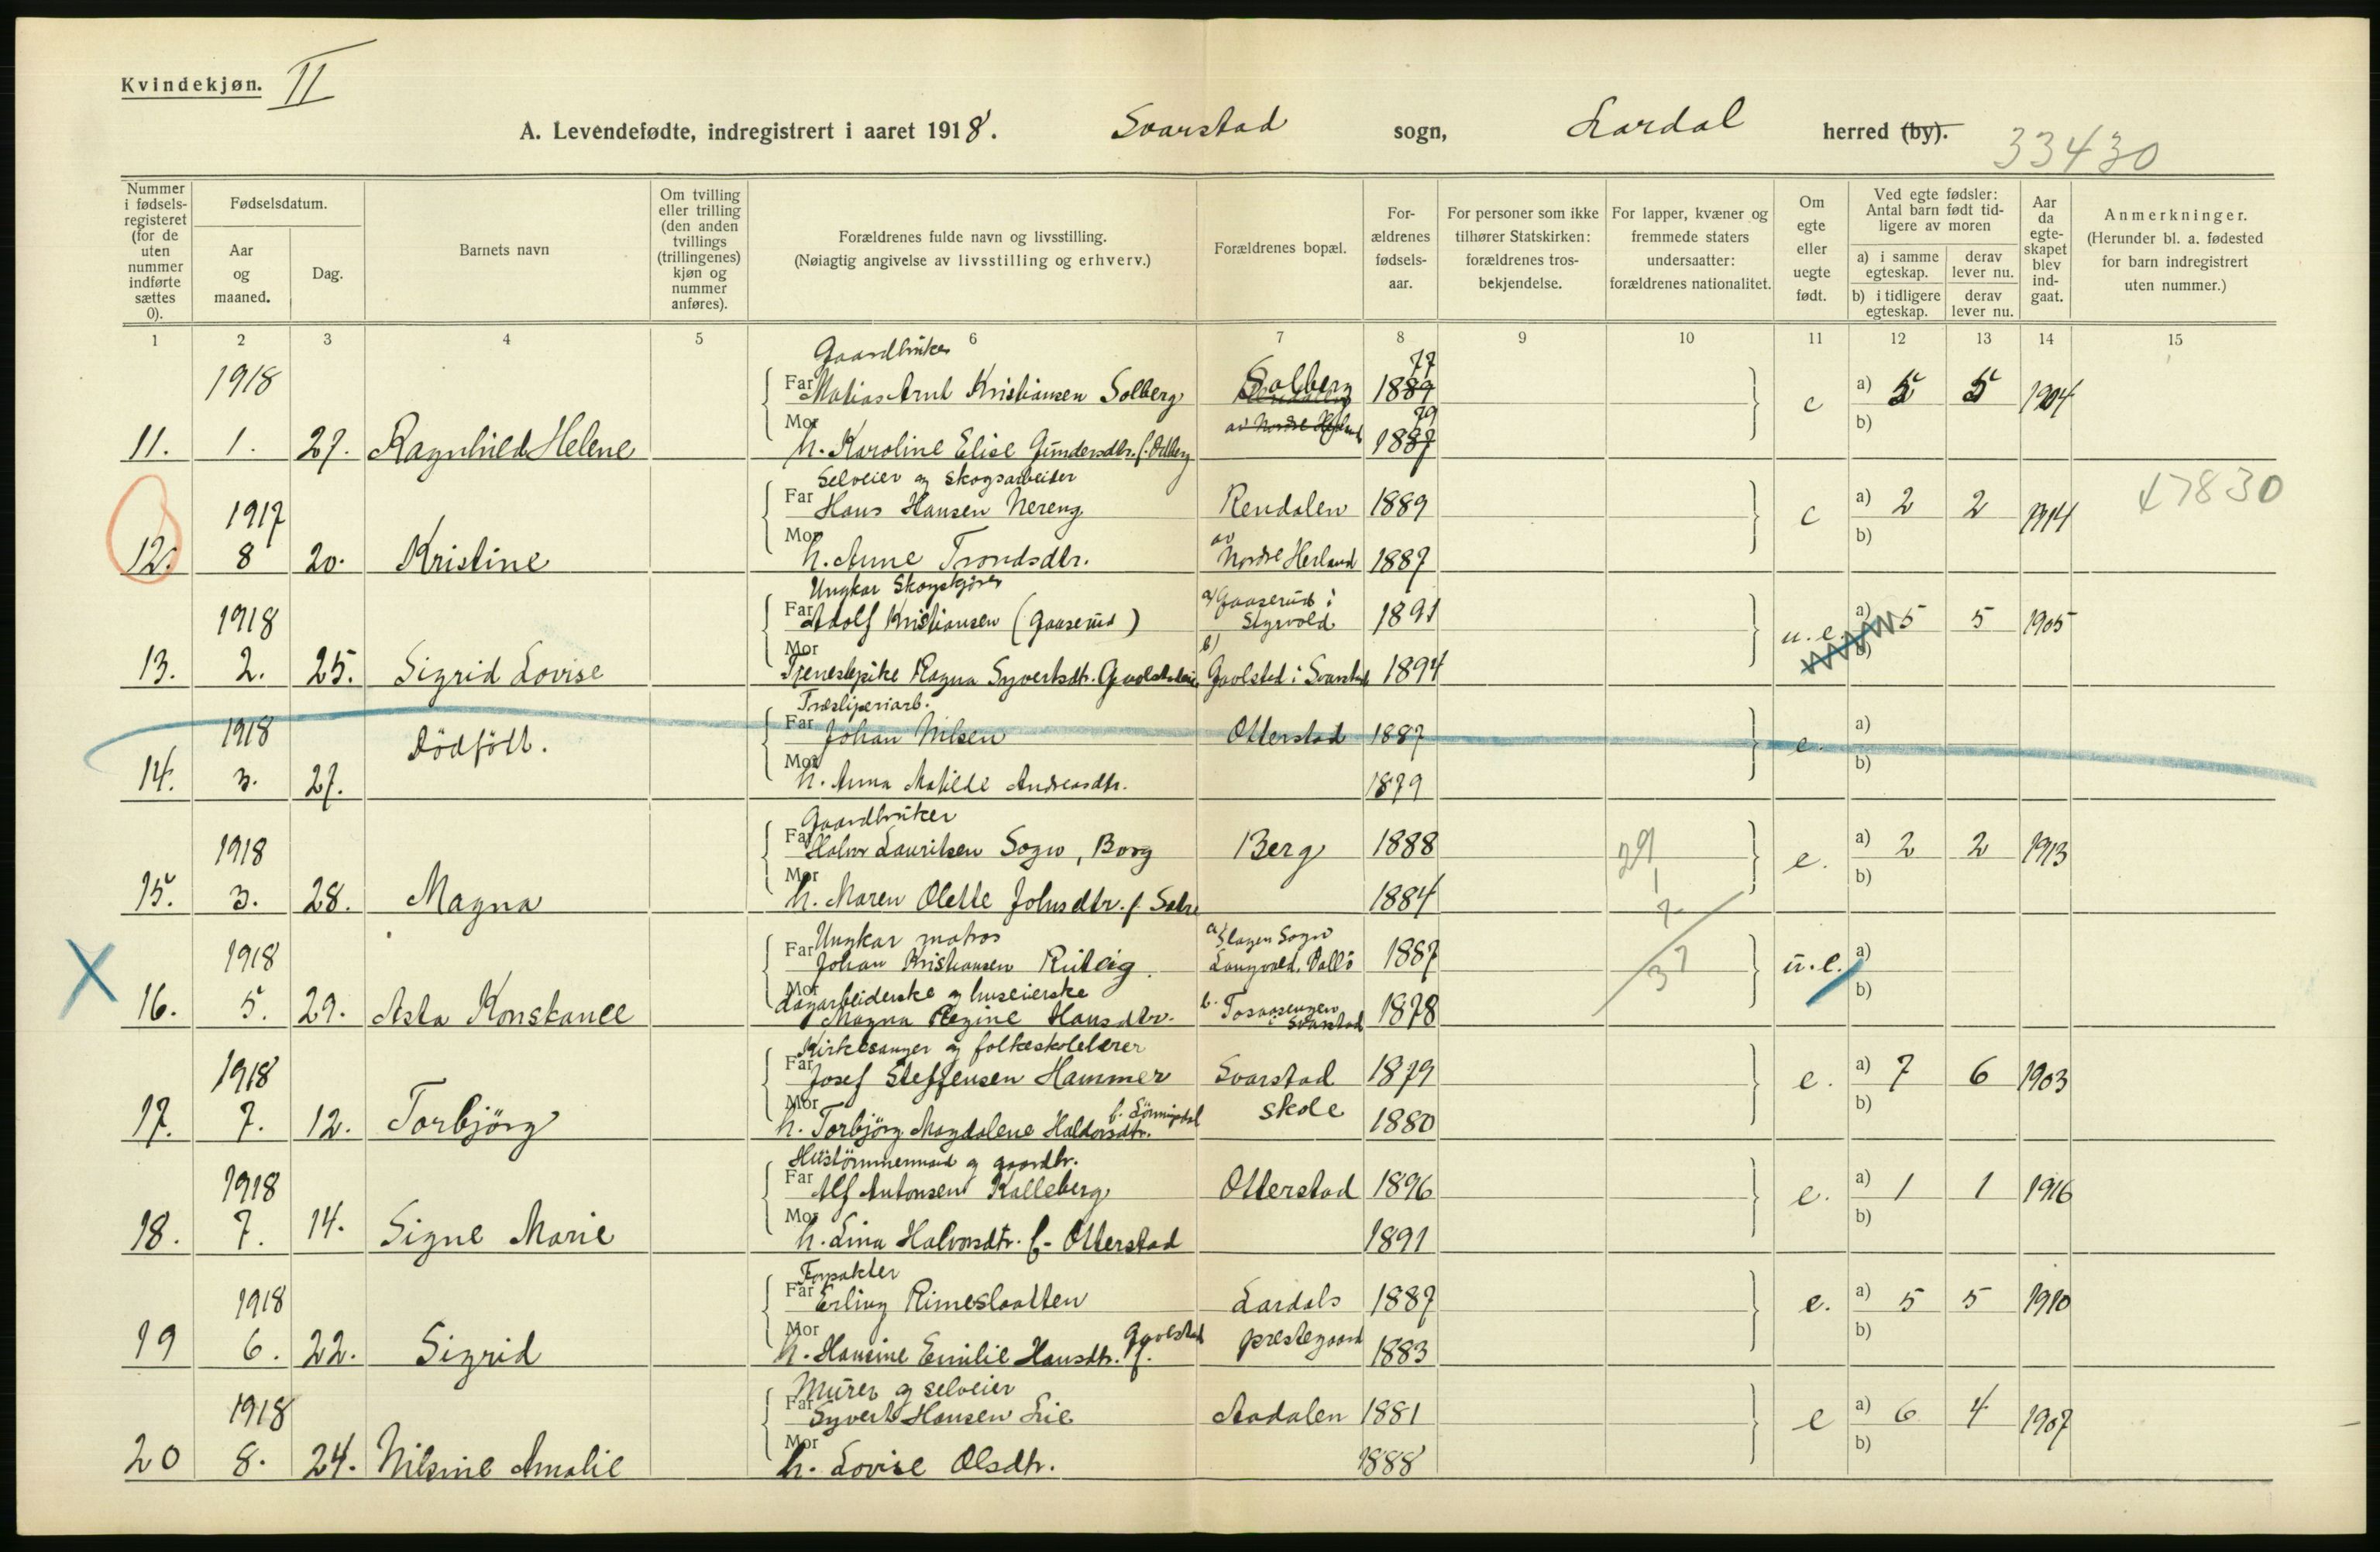 Kvindekjøn. II
A. Levendefødte, indregistrert i aaret 1918. Svarstad sogn, Lardal herred (by). 33430
Nummer i fødselsregisteret (for de uten nummer indførte sættes 0).
Fødselsdatum.
Aar og maaned.
Dag.
Barnets navn
Om tvilling eller trilling (den anden tvillings (trillingenes) kjøn og nummer anføres).
Forældrenes fulde navn og livsstilling.
(Nøiagtig angivelse av livsstilling og erhverv.)
Forældrenes bopæl.
For-ældrenes fødsels-aar.
For personer som ikke tilhører Statskirken: forældrenes tros-bekjendelse.
For lapper, kvæner og fremmede staters undersaatter: forældrenes nationalitet.
Om egte eller uegte født.
Ved egte fødsler: Antal barn født tid-ligere av moren
a) i samme egteskap. derav lever nu.
b) i tidligere egteskap. derav lever nu.
Aar da egte-skapet blev ind-gaat.
Anmerkninger.
(Herunder bl. a. fødested for barn indregistrert uten nummer.)
1 2 3 4 5 6 7 8 9 10 11 12 13 14 15
Gaardbruker 77
1918 Far Matias Arnt Kristiansen Solberg Solberg 1889 e a) 5 5 1904
Mor av Nordre Herland 79 b)
11. 1. 27. Ragnhild Helene h. Karoline Elise Gundersdtr. f. 1887
Selveier og skogsarbeider
1917 Far Hans Hansen Nereng Rendalen 1889 e a) 2 2 1914 47830
Mor av b)
12. 8 20. Kristine h. Anne Trondsdtr. Nordre Herland 1887
Ungkar Skogskjører a) Gaaserud i
1918 Far Adolf Kristiansen (Gaaserud) Styrvold 1891 u.e. a) 5 5 1905
Mor b) b)
13. 2. 25. Sigrid Lovise Tjenestepike Ragna Syvertsdtr. Gavlstad i Svarstad 1894
Træsliperiarb.
1918 Dødfødt. Far Johan Nilsen Otterstad 1887 e. a)
Mor b)
14. 3. 27. h. Anna Matilde Andreasdtr. 1879
Gaardbruker
1918 Far Halvor Lauritsen Sogn, Borg Berg 1888 29 e. a) 2 2 1913
Mor 1 b)
15. 3. 28. Magna h. Maren Olette Johnsdtr. f. 1884
Ungkar matros a) Slagen Sogn 7
1918 Far Johan Kristiansen Langvold, Vallø 1887 37 u.e. a)
Mor Dagarbeiderske og huseierske b)
16. 5. 29. Asta Konstance Magna Regine Hansdtr. b. i Svarstad 1878
Kirkesanger og folkeskolelærer
1918 Far Josef Steffensen Hammer Svarstad 1879 e. a) 7 6 1903
Mor skole b)
17. 7. 12. Torbjörg h. Torbjörg Magdalene Haldorsdtr. 1880
Hustømmermand og gaardbr.
1918 Far Alf Antonsen Kalleberg Otterstad 1896 e. a) 1 1 1916
Mor b)
18. 7. 14. Signe Marie h. Lina Halvorsdtr. f. Otterstad 1891
Forpakter
1918 Far Erling Rimeslaatten Lardals 1887 e. a) 5 5 1910
Mor prestegaard b)
19 6. 22. Sigrid h. Hansine Emilie Hansdtr. f. Gavlstad 1883
Murer og selveier
1918 Far Syvert Hansen Lie Aadalen 1881 e a) 6 4 1907
Mor b)
20 8. 24. Nilsine Amalie h. Lovise Olsdtr. 1888